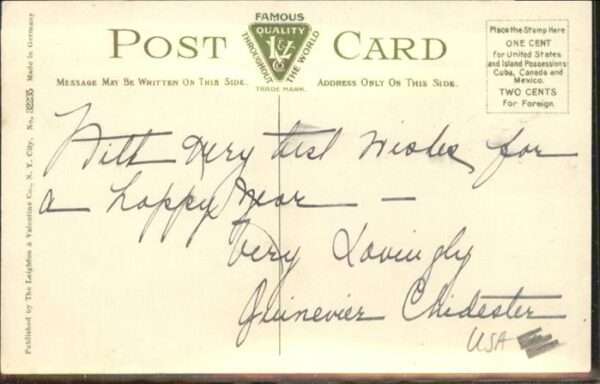 FAMOUS
QUALITY
THROUGHOUT THE WORLD
L&V
TRADE MARK.
POST CARD
MESSAGE MAY BE WRITTEN ON THIS SIDE.
ADDRESS ONLY ON THIS SIDE.
Place the Stamp Here
ONE CENT
for United States
and Island Possessions
Cuba, Canada and
Mexico.
TWO CENTS
For Foreign.
Published by The Leighton & Valentine Co., N. Y. City. No. 32235 Made in Germany
With very best Wishes for
a happy Year — —
Very Lovingly
Guinevier Chidester
USA